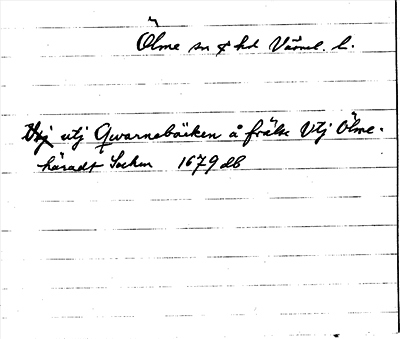 Ölme sn & hd Värml. l.
utj Qwarnebäcken å frälse Utj Ölme-
häradt Sochen 1679 db